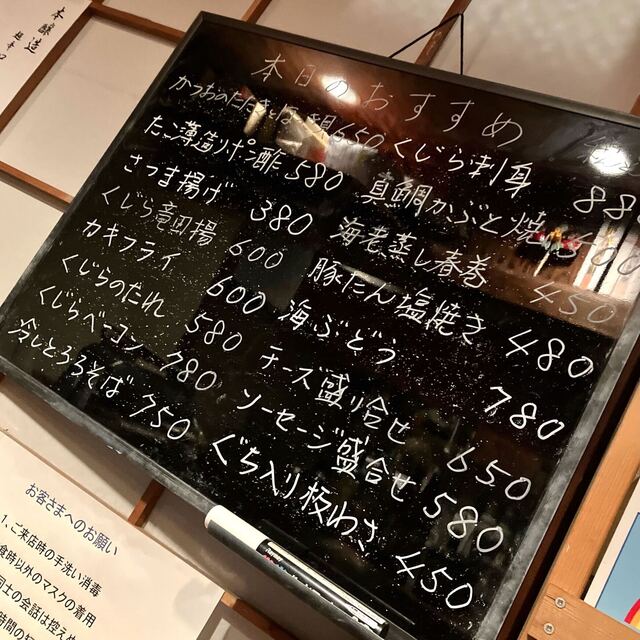 本日のおすすめ
かつおのたたき 650
たこ薄造りポン酢 580
さつま揚げ 380
くじら竜田揚 600
カキフライ 600
くじらのたれ 580
くじらベーコン 780
冷しとろろそば 750
くじら刺身 88
真鯛かぶと焼
海老蒸し春巻 450
豚たん塩焼き 480
海ぶどう 780
チーズ盛り合せ 650
ソーセージ盛合せ 580
ぐち入り板わさ 450
本醸造
超辛口
お客さまへのお願い
1、ご来店時の手洗い消毒
食時以外のマスクの着用
同士の会話は控えめ